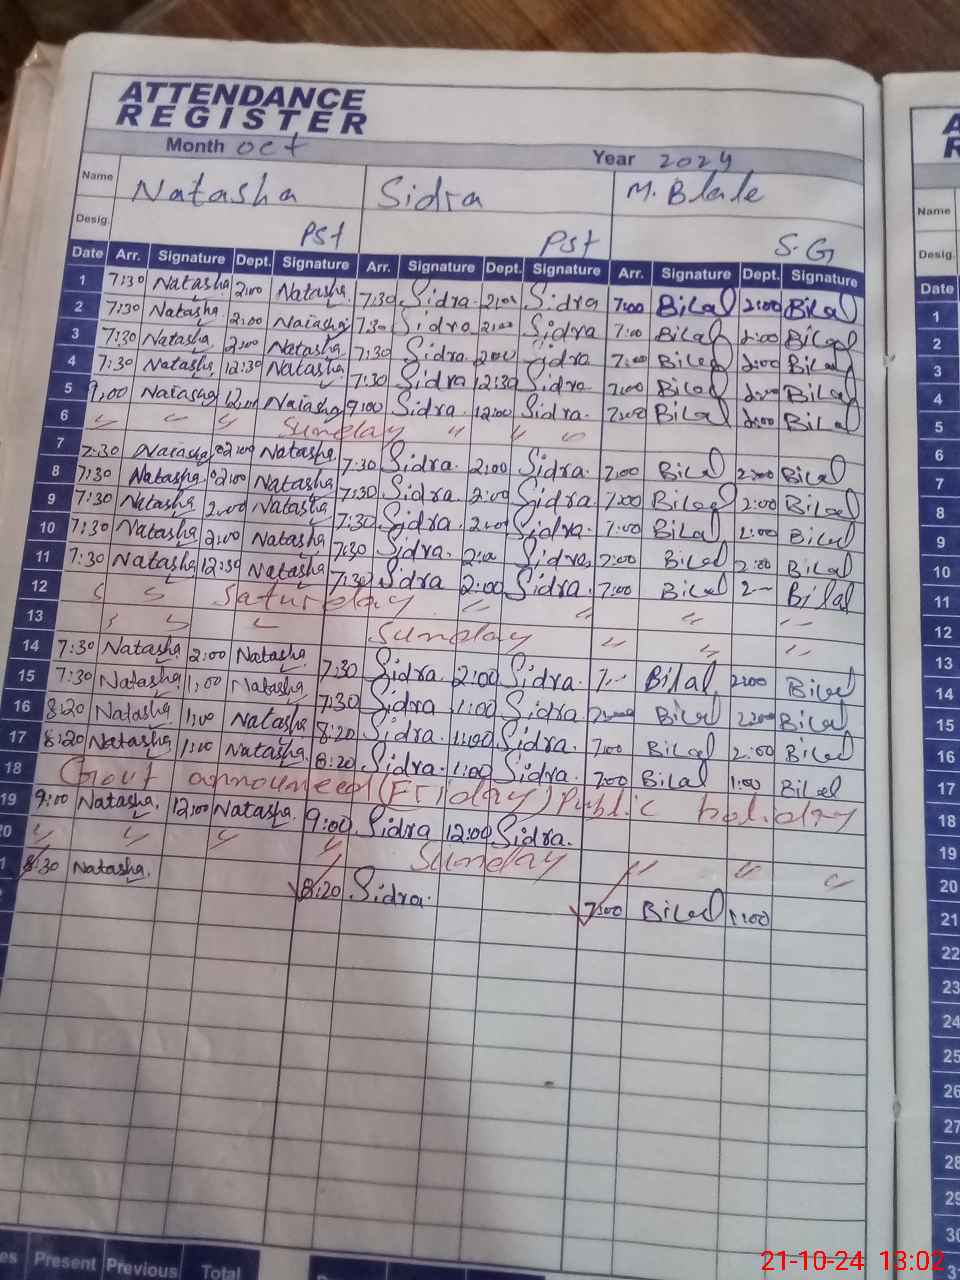 ATTENDANCE
REGISTER
Month oct Year 2024
Name Natasha Sidra M. Blale
Desig. PSt PSt S.G
Date Arr. Signature Dept. Signature Arr. Signature Dept. Signature Arr. Signature Dept. Signature
1 7:30 Natasha 2:00 Natasha 7:30 Sidra 2:00 Sidra 7:00 Bilal 2:00 Bilal
2 7:30 Natasha 2:00 Natasha 7:30 Sidra 2:00 Sidra 7:00 Bilal 2:00 Bilal
3 7:30 Natasha 2:00 Natasha 7:30 Sidra 2:00 Sidra 7:00 Bilal 2:00 Bilal
4 7:30 Natasha 12:30 Natasha 7:30 Sidra 12:30 Sidra 7:00 Bilal 2:00 Bilal
5 9:00 Natasha 12:00 Natasha 9:00 Sidra 12:00 Sidra 7:00 Bilal 2:00 Bilal
6 " " " Sunday " " "
7 7:30 Natasha 02:00 Natasha 7:30 Sidra 2:00 Sidra 7:00 Bilal 2:00 Bilal
8 7:30 Natasha 02:00 Natasha 7:30 Sidra 2:00 Sidra 7:00 Bilal 2:00 Bilal
9 7:30 Natasha 2:00 Natasha 7:30 Sidra 2:00 Sidra 7:00 Bilal 2:00 Bilal
10 7:30 Natasha 2:00 Natasha 7:30 Sidra 2:00 Sidra 7:00 Bilal 2:00 Bilal
11 7:30 Natasha 12:30 Natasha 7:30 Sidra 2:00 Sidra 7:00 Bilal 2 Bilal
12 " " Saturday " " " "
13 " " " Sunday " " "
14 7:30 Natasha 2:00 Natasha 7:30 Sidra 2:00 Sidra 7 Bilal 2:00 Bilal
15 7:30 Natasha 1:00 Natasha 7:30 Sidra 1:00 Sidra Bilal 2:00 Bilal
16 8:20 Natasha 1:00 Natasha 8:20 Sidra 1:00 Sidra 7:00 Bilal 2:00 Bilal
17 8:20 Natasha 1:00 Natasha 8:20 Sidra 1:00 Sidra 7:00 Bilal 1:00 Bilal
18 Govt announced (Friday) Public holiday
19 9:00 Natasha 12:00 Natasha 9:00 Sidra 12:00 Sidra
20 " " " " Sunday " " "
1 8:30 Natasha 8:20 Sidra 7:00 Bilal 1:00
es Present Previous Total
A
R
Name
Desig.
Date
1
2
3
4
5
6
7
8
9
10
11
12
13
14
15
16
17
18
19
20
21
22
23
24
25
26
27
28
29
30
31
21-10-24 13:02